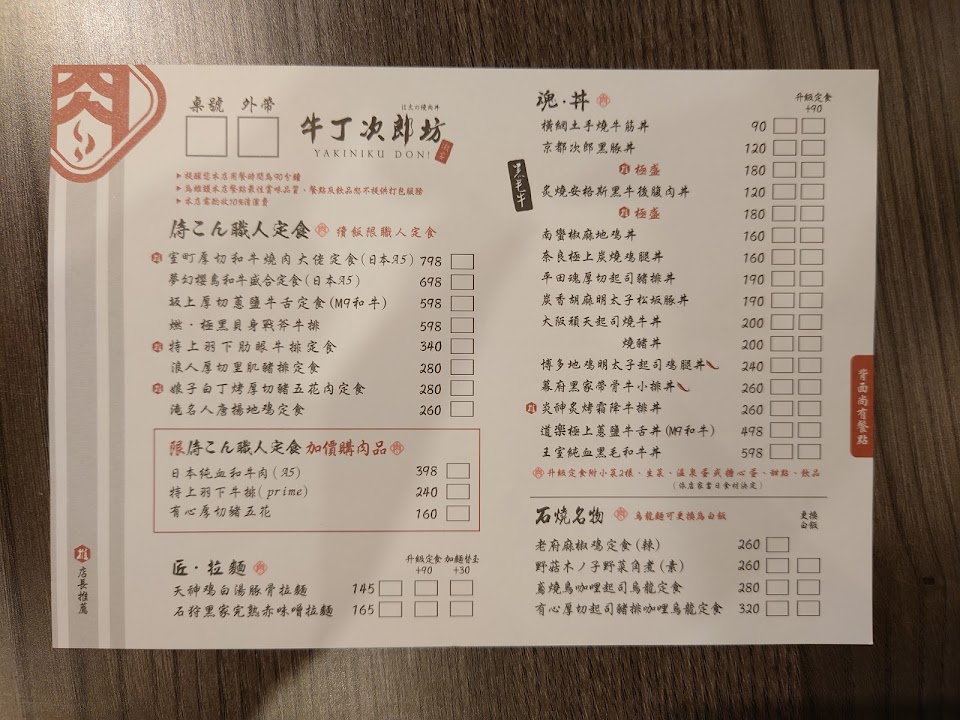 肉
桌號 外帶
牛丁次郎坊
YAKINIKU DON!
▶提醒您本店用餐時間為90分鐘
▶為維護本店餐點最佳賞味品質、餐點及飲品恕不提供打包服務
▶本店需酌收10%清潔費
侍こん職人定食 續飯限職人定食
推 室町厚切和牛燒肉大佬定食(日本A5) 798
夢幻櫻島和牛盛合定食(日本A5) 698
坂上厚切蔥鹽牛舌定食(M9和牛) 598
燃·極黑貝身戰斧牛排 598
推 特上羽下肋眼牛排定食 340
浪人厚切里肌豬排定食 280
推 娘子白丁烤厚切豬五花肉定食 280
滝名人唐揚地鸡定食 260
限侍こん職人定食 加價購肉品
日本純血和牛肉(A5) 398
特上羽下牛排(prime) 240
有心厚切豬五花 160
匠·拉麵
升級定食 加麵替玉
+90 +30
天神鸡白湯豚骨拉麵 145
石狩黑家完熟赤味噌拉麵 165
推 店長推薦
魂·丼
升級定食
+90
橫網土手燒牛筋丼 90
京都次郎黑豚丼 120
推 極盛 180
黑毛牛
炙燒安格斯黑牛後腹肉丼 120
推 極盛 180
南蠻椒麻地鸡丼 160
奈良極上炭燒鸡腿丼 160
平田魂厚切起司豬排丼 190
炭香胡麻明太子松坂豚丼 190
大阪頑天起司燒牛丼 200
燒豬丼 200
博多地鸡明太子起司鸡腿丼 240
幕府黑家帶骨牛小排丼 260
推 炎神炙烤霜降牛排丼 260
道樂極上蔥鹽牛舌丼(M9和牛) 498
王室純血黑毛和牛丼 598
升級定食附小菜2樣、生菜、溫泉蛋或糖心蛋、甜點、飲品
(依店家當日食材決定)
背面尚有餐點
石燒名物 烏龍麵可更換為白飯
更換
白飯
老府麻椒鸡定食(辣) 260
野菇木ノ子野菜角煮(素) 260
嵩燒鳥咖哩起司烏龍定食 280
有心厚切起司豬排咖哩烏龍定食 320